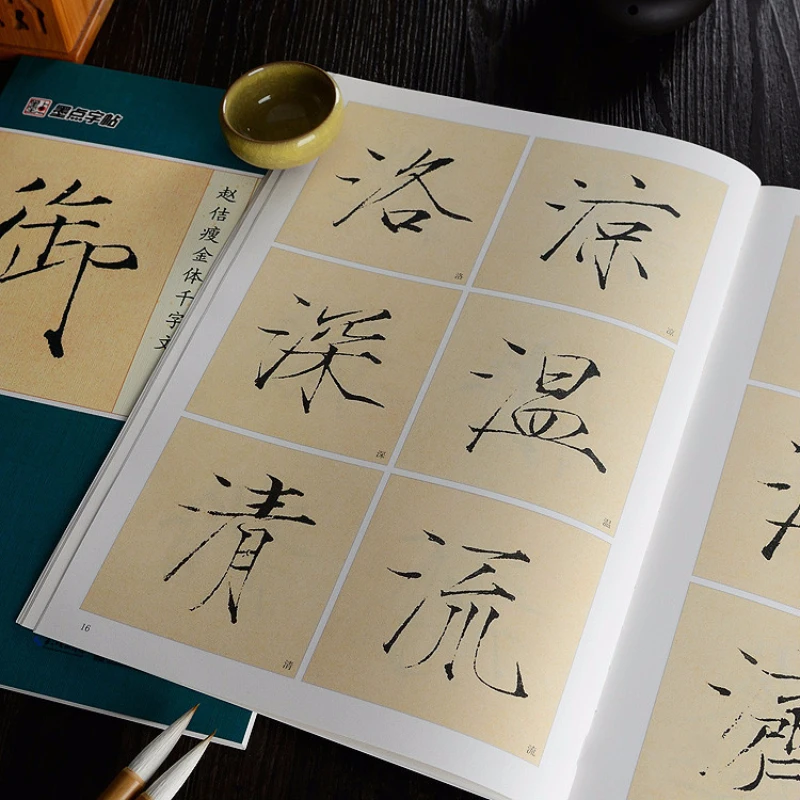 墨点字帖
御
赵佶瘦金体千字文
洛 涼
洛 凉
深 温
深 温
清 流
清 流
16
濟